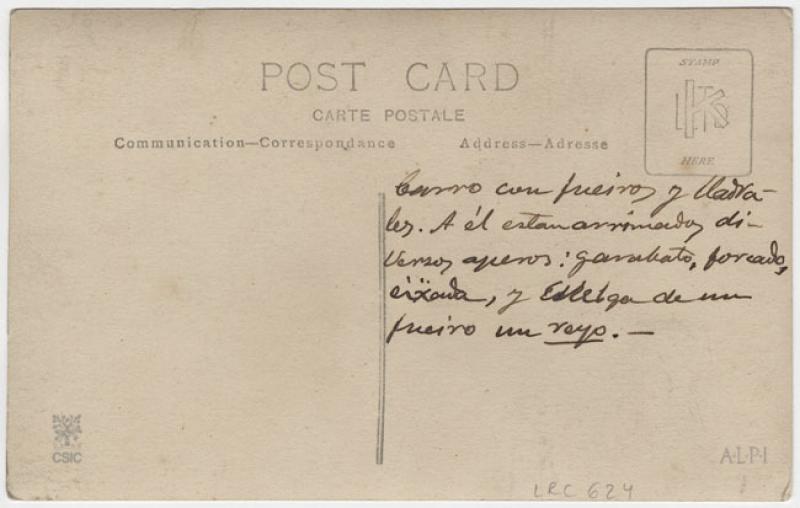 POST CARD
CARTE POSTALE
Communication—Correspondance
Address—Adresse
STAMP
HERE
Carro con fueiros y lladra-
les. A él estan arrimados di-
versos aperos: garabato, forcado,
eixada, y cuelga de un
fueiro un reyo. —
CSIC
A·L·P·I
LRC 624